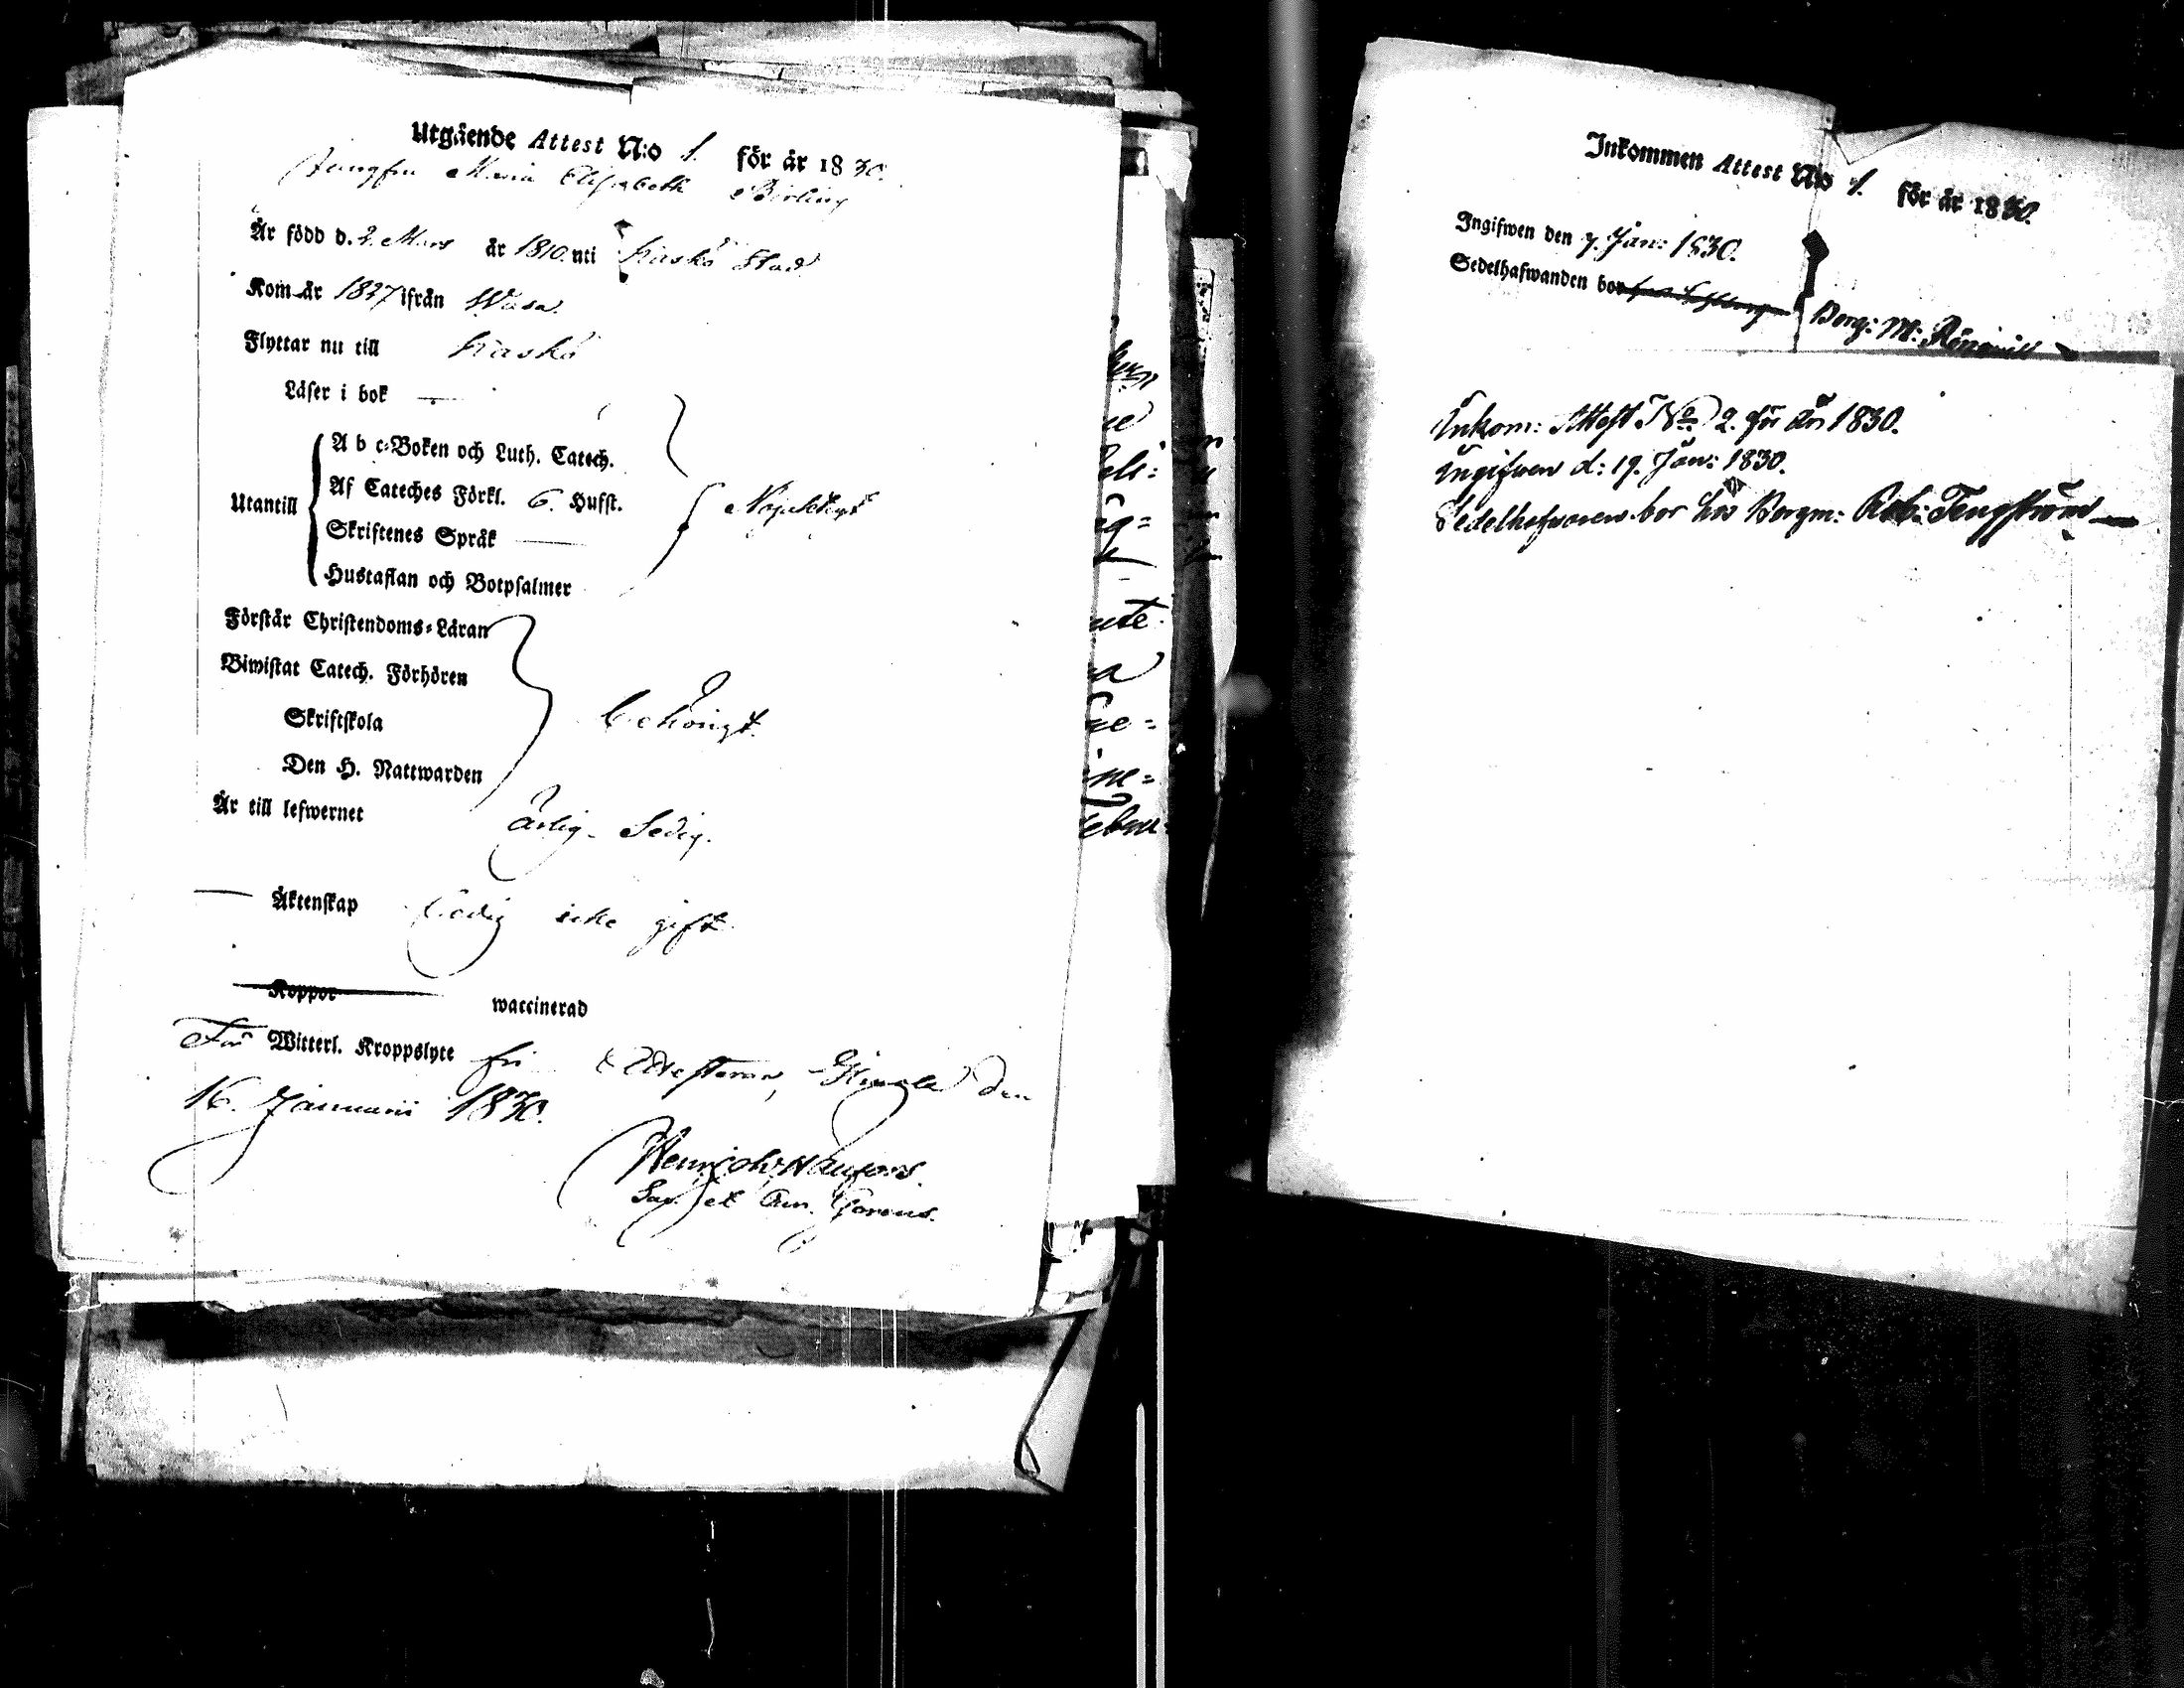 Utgående Attest N:o 1. för år 1830.
Jungfru Maria Elisabeth Birling
Är född d. 2. Mars år 1810. uti Kaskö Stad.
Kom år 1827 ifrån Wasa.
Flyttar nu till Kaskö
Läser i bok —
Utantill
A b c-Boken och Luth. Catech.
Af Cateches Förkl. 6. Hufst. Nöjaktigt
Skriftenes Språk —
Hustaflan och Botpsalmer
Förstår Christendoms-Läran
Biwistat Catech. Förhören
Skriftskola behörigt.
Den H. Nattwarden
Är till lefwernet ärlig. Sedig.
— Äktenskap ledig icke gift.
Koppor waccinerad
Får Witterl. Kroppslyte fri den
16. Januarii 1830.
Inkommen Attest N:o 1. för år 1830.
Ingifwen den 7. Jan: 1830.
Sedelhafwanden bor Borg: M:
Inkom: Attest No 2. för år 1830.
Ingifven d: 19. Jan: 1830.
Sedelhafvaren bor hos Borgm: Rob: Tengström —